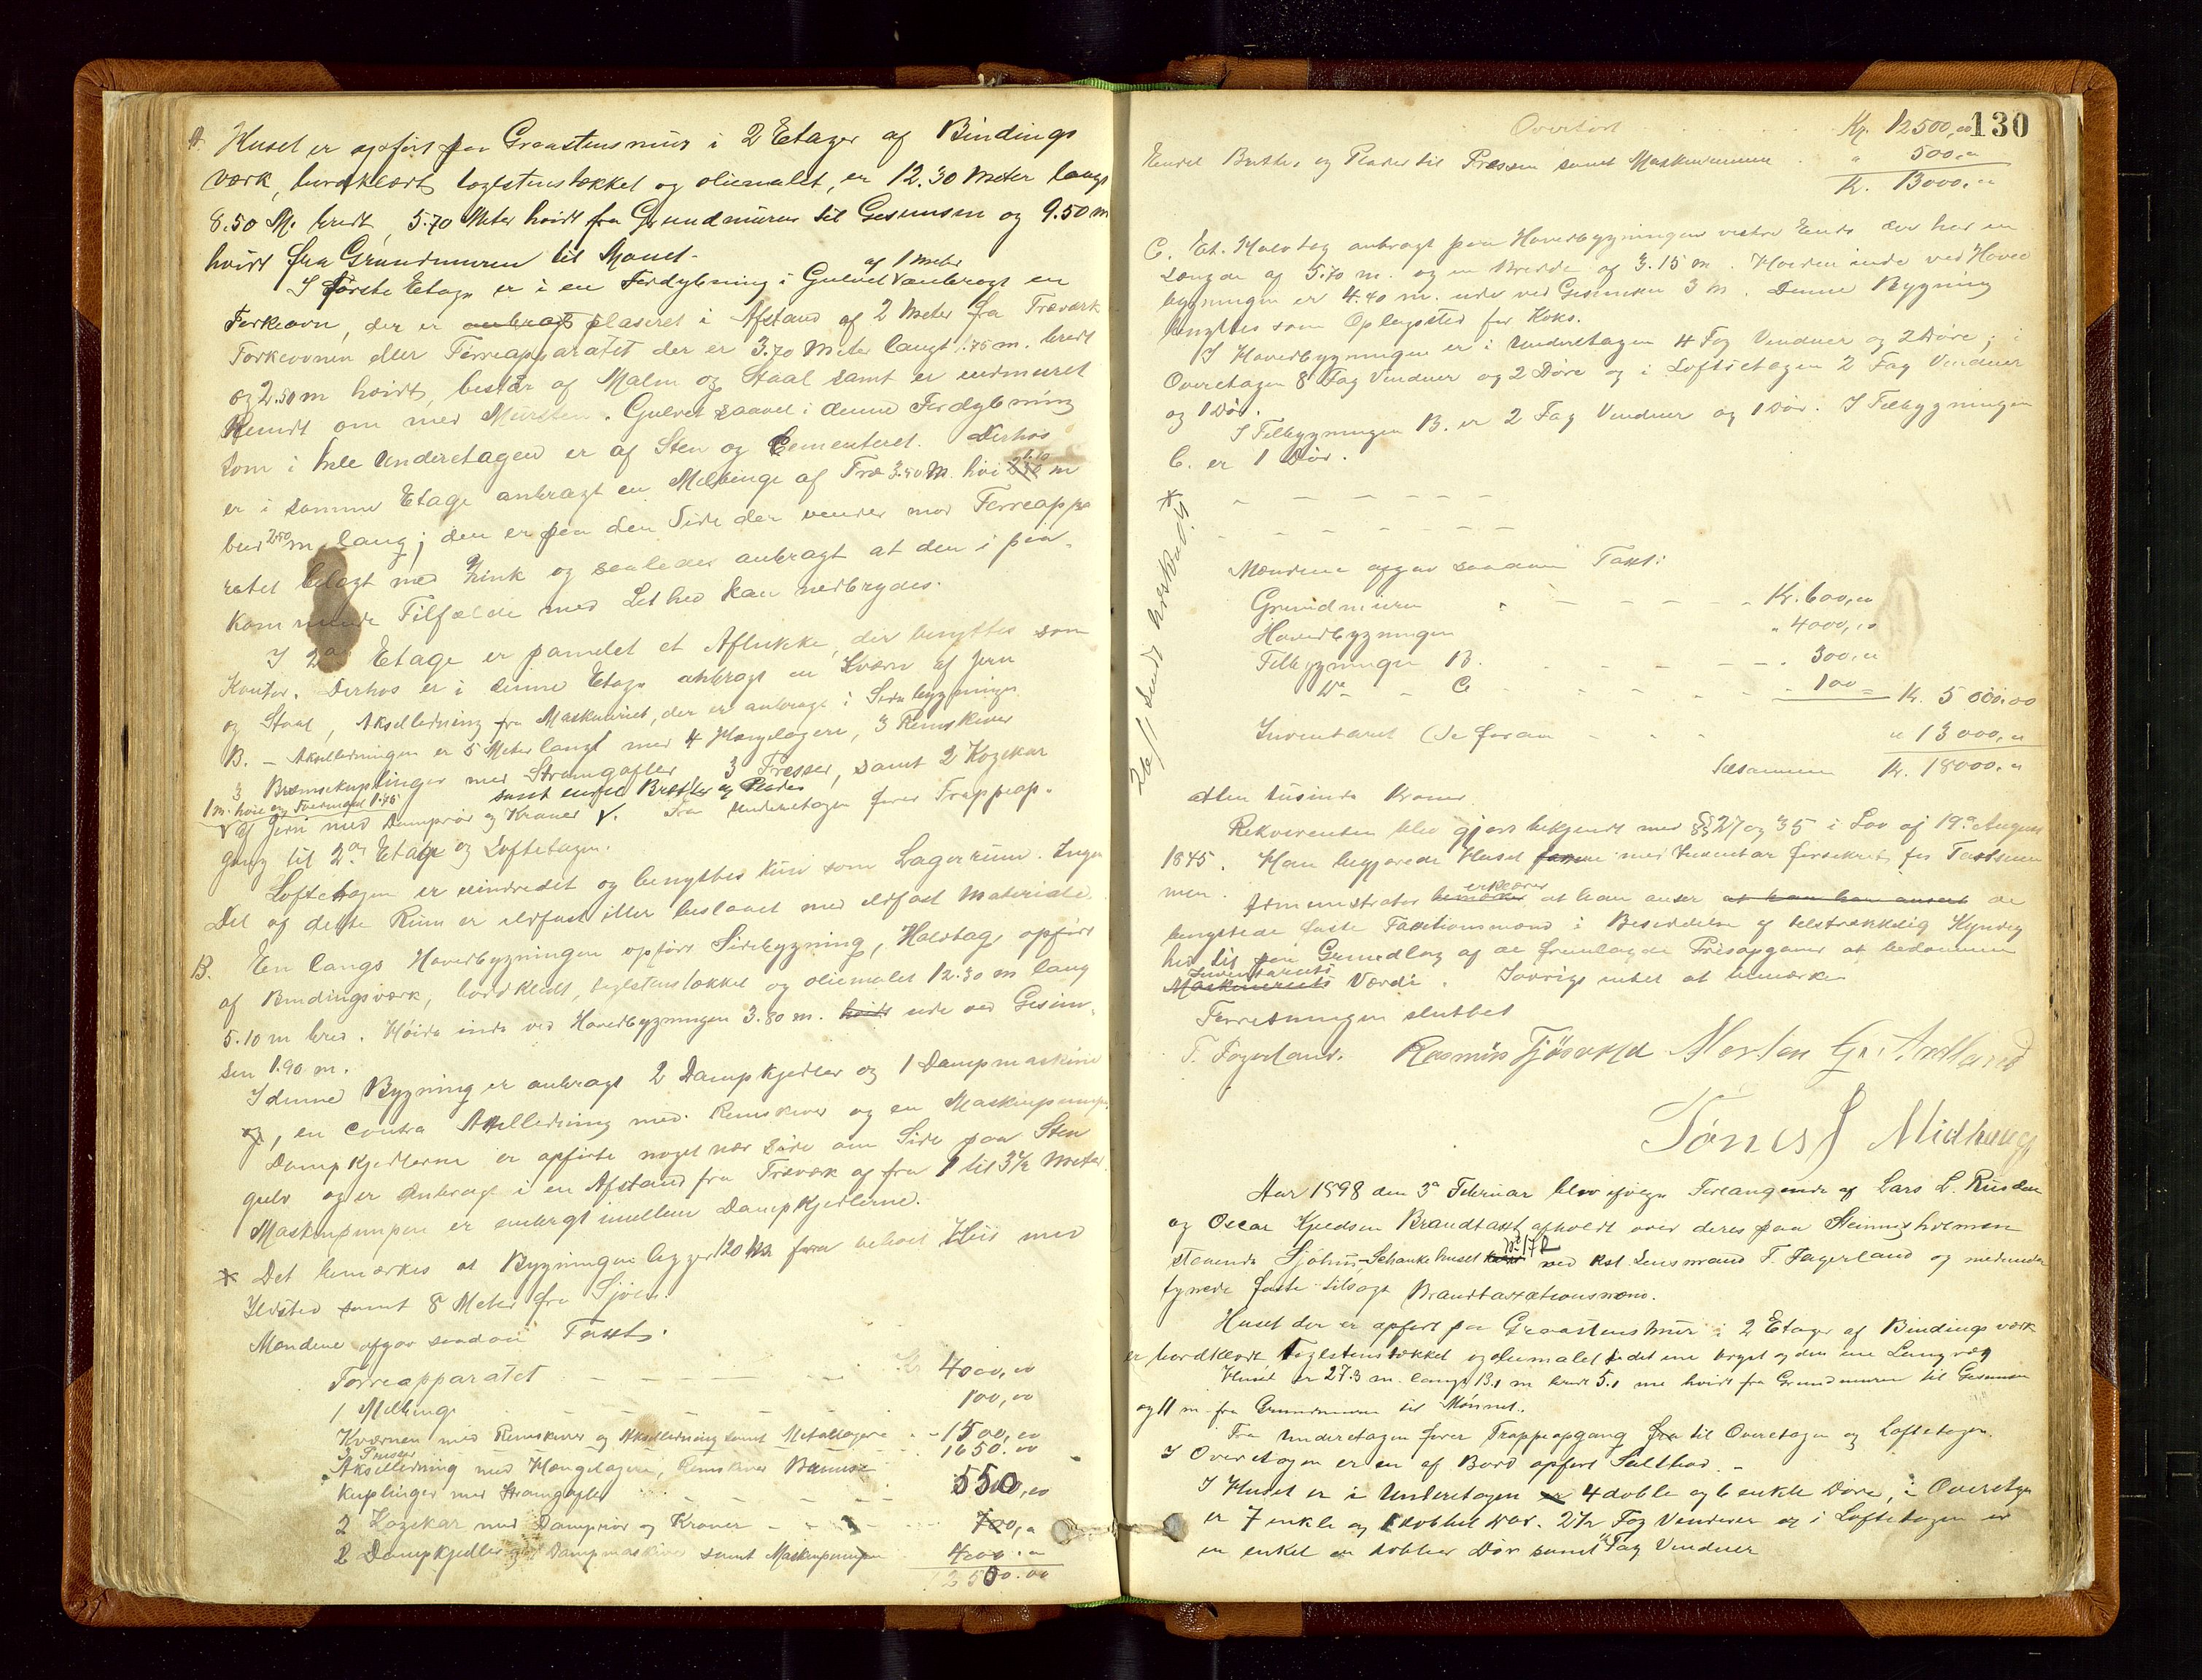 A. Huset er opført paa Graastensmur i 2 Etager af Bindings
værk, bordklædt teglstenstækket og oliemalet, er 12.30 Meter langt
8.50 M. bredt, 5.70 Meter høidt fra Grundmuren til Gesimsen og 9.50 m
høidt fra Grundmuren til Mønet.
I første Etage er i en Fordybning i Gulvet af 1 Meter anbragt en
Tørkeovn, der er anbragt plaseret i Afstand af 2 Meter fra Træværk
Tørkeovnen eller Tørreapparatet der er 3.70 Meter langt 1.75 m. bredt
og 2.50 m høidt, består af Malm og Staal samt er indmuret
Rundt om med Mursten. Gulvet saavel i denne Fordybning
som i hele Underetagen er af Sten og Cementeret. Derhos
er i samme Etage anbragt en Melbinge af Træ 3.50 M. høi m
bred 2.50 m lang; den er paa den Side der vender mod Tørreappa
ratet belagt med Zink og saaledes anbragt at den i paa-
kommende Tilfælde med Lethed kan nedbrydes.
I 2den Etage er panelet et Aflukke, der benyttes som
Kontor. Derhos er i denne Etage anbragt en Kværn af Jern
og Staal, Akselledning fra Maskineriet, der er anbragt i Sidebygningen
B. – Akselledningen er 5 Meter langt med 4 Hængelagere, 3 Remskiver
3 Bremsekuplinger med Stramgafler 3 Presser, samt 2 Kogekar
1 m. høie og Tvermaal 1.45 samt endel Brætter og Plader
af Jern med Damprør og Kraner. Fra Underetagen fører Trappeop-
gang til 2den Etage og Loftetagen.
Loftetagen er uindredet og benyttes kun som Lagerrum. Ingen
Del af dette Rum er ildfast eller beslaaet med ildfast Materiale.
B. En langs Hovedbygningen opført Sidebygning, Halvtag, opført
af Bindingsværk, bordklædt, teglstenstækket og oliemalet 12.30 m lang
5.10 m bred. Høide inde ved Hovedbygningen 3.80 m. høidt ude ved Gesim-
sen 1.90 m.
I denne Bygning er anbragt 2 Dampkjedler og 1 Dampmaskine
og, en contra Akselledning med Remskiver og en Maskinpumpe.
Dampkjedlerne er opførte noget nær Side om Side paa Sten
gulv og er anbragt i en Afstand fra Træværk af fra 1 til 3½ Meter.
Maskinpumpen er anbragt mellem Dampkjedlerne.
* Det bemærkes at Bygningen ligger 120 M. fra beboet Huus med
Ildsted samt 8 Meter fra Sjøen.
Mændene afgav saadan Taxt:
Tørreapparatet – – – Kr 4000,00
1 Melbinge – – – 100,00
Kværnen med Remskiver og Akselledning samt Metallagere – 1500,00
3 Presser 1650.00
Akselledning med Hængelagere, Remskiver Bremse
kuplinger med Stramgafler – – – 550,00
2 Kogekar med Damprør og Kraner – – 700,00
2 Dampkjedler og Dampmaskine samt Maskinpumpen 4000.00
12500.00
130
Overført Kr. 12500,00
Endel Brætter og Plader til Pressen samt Maskinremme " 500,00
Kr. 13000,00
C. Et Halvtag anbragt paa Hovedbygningens vestre Ende der har en
Længde af 5.70 m. og en Bredde af 3.15 m. Høiden inde ved Hoved
bygningen er 4.40 m. ude ved Gesimsen 3 M. Denne Bygning
benyttes som Oplagssted for Koks.
I Hovedbygningen er i Underetagen 4 Fag Vinduer og 2 Døre; i
Overetagen 8 Fag Vinduer og 2 Døre og i Loftsetagen 2 Fag Vinduer
og 1 Dør.
I Tilbygningen B. er 2 Fag Vinduer og 1 Dør. I Tilbygningen
C. er 1 Dør.
*
Mændene afgav saadan Taxt:
Grundmuren – – – Kr. 600,00
Hovedbygningen " 4000,00
Tilbygningen B. – – – 300,00
Do – C – – – 100 Kr. 5000.00
Inventaret (se foran – – " 13000,00
Tilsammen Kr. 18000,00
atten tusinde Kroner
Rekvirenten blev gjort bekjendt med §§ 27 og 35 i Lov af 19de August
1845. Han begjærede Huset med Inventar forsikret for Taxtsum
men. Administrator bemærker erklærer at han anser at han har ansert de
benyttede faste Taxtionsmænd i Besiddelse af tilstrækkelig Kyndig
hed til paa Grundlag af de fremlagde Prisopgaver at bedømme
Maskineriets Inventarets Værdi. Iøvrigt intet at bemærke
Forretningen sluttet
T. Fagerland. Rasmus Tjøsvold Morten G. Andland
Tønes J Midhaug
26/1 Sendt Udskrift
Aar 1898 den 3die Februar blev ifølge Forlangende af Lars L. Risdal
og Oscar Kjeldsen Brandtaxt afholdt over deres paa Steiningsholmen
staaende Sjøhus, Schankehuset No 172 ved kst. Lensmand T. Fagerland og medunder
tegnede faste tilsagte Brandtaxationsmænd.
Huset der er opført paa Graastensmur i 2 Etager af Bindingsværk
er bordklædt teglstenstækket og oliemalet paa det ene bryst og den ene Langvæg
Huset er 27.3 m. langt 13.1 m bredt 5.1 m høidt fra Grundmuren til Gesimsen
og 11 m fra Grundmuren til Mønnet.
Fra Underetagen fører Trappeopgang fra til Overetagen og Loftetagen.
I Overetagen er en af Bord opført Saltbod. –
I Huset er i Underetagen er 4 doble og 6 enkle Døre, i Overetagen
er 7 enkle og 1 dobbel Dør. 2½ Fag Vinduer og i Loftetagen er
en enkel en dobbel Dør samt 4 Fag Vinduer